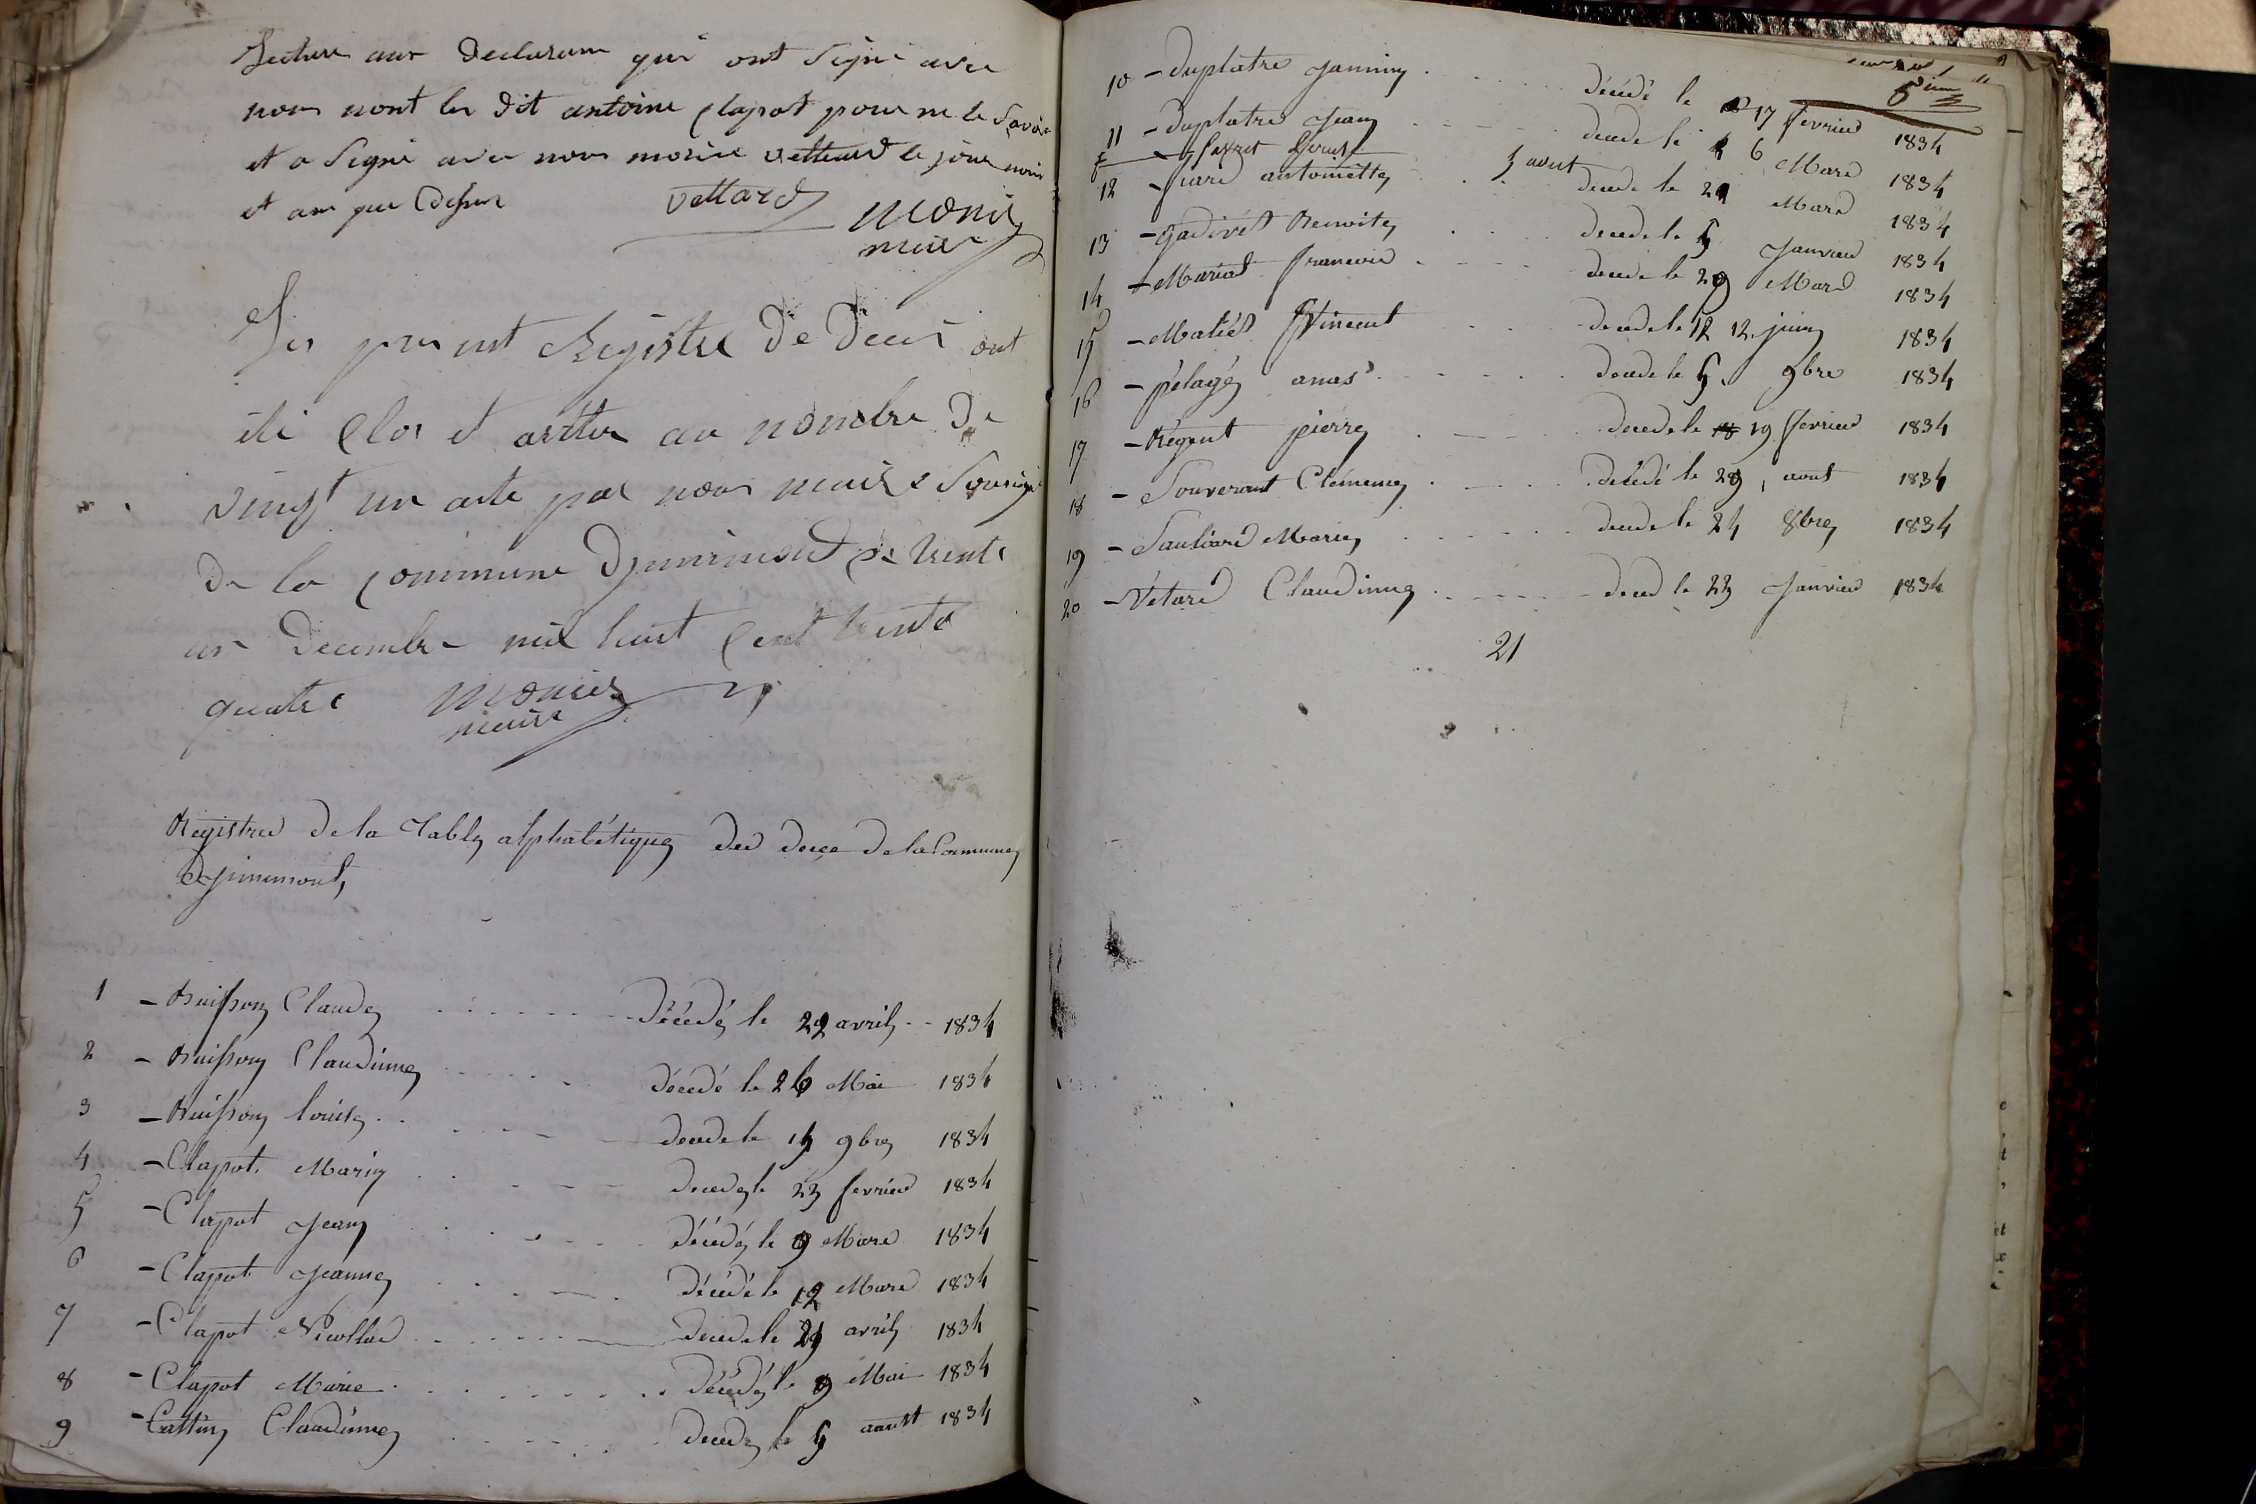 Lecture aux declarans qui ont signé avec
nous nont les dit antoine Clapot pour ne le savoir
et a signé avec nous maire vettard le jour mois
et an que dessus Vettard monier
maire
Les present Registre de deces ont
été clos et arrêter au nombre de
vingt un acte par nous maire soussigné
de la commune Dyjimimont le trente
un Decembre mil huit cent trente
quatre monier
maire
Registre de la table alphabétique des dece de la Commune
Dyjimimont,
1 - Buisson Claude décédé le 22 avril 1834
2 - Buisson Claudinne décedé le 26 Mai 1834
3 - Buisson Louise decede le 14 9bre 1834
4 - Clapot Marie decede le 23 fevrier 1834
5 - Clapot Jean décédé le 9 Mars 1834
6 - Clapot Jeanne décédé le 12 Mars 1834
7 - Clapot Nicollas decede le 29 avril 1834
8 - Clapot Marie décédé le 9 Mai 1834
9 - Cattin Claudinne decede le 5 aoust 1834
10 - Duplatre Jannin décédé le 17 fevrier 1834
11 - Duplatre Jean decede le 6 Mars 1834
5 aout
12 - fiard antoinette decede le 21 Mars 1834
13 - Gadivet Benoite decede le 5 Janvier 1834
14 - Mariat francois decede le 29 Mars 1834
15 - Matiés Vincent decede le 12 12 juin 1834
16 - pélagé anas decede le 5 9bre 1834
17 - Régeut pierre decede le 18 19 fevrier 1834
18 - Souverant Clémence décédé le 29 aout 1834
19 - Sauliard Marie decede le 24 8bre 1834
20 - Vétard Claudinne deced le 23 Janvier 1834
21